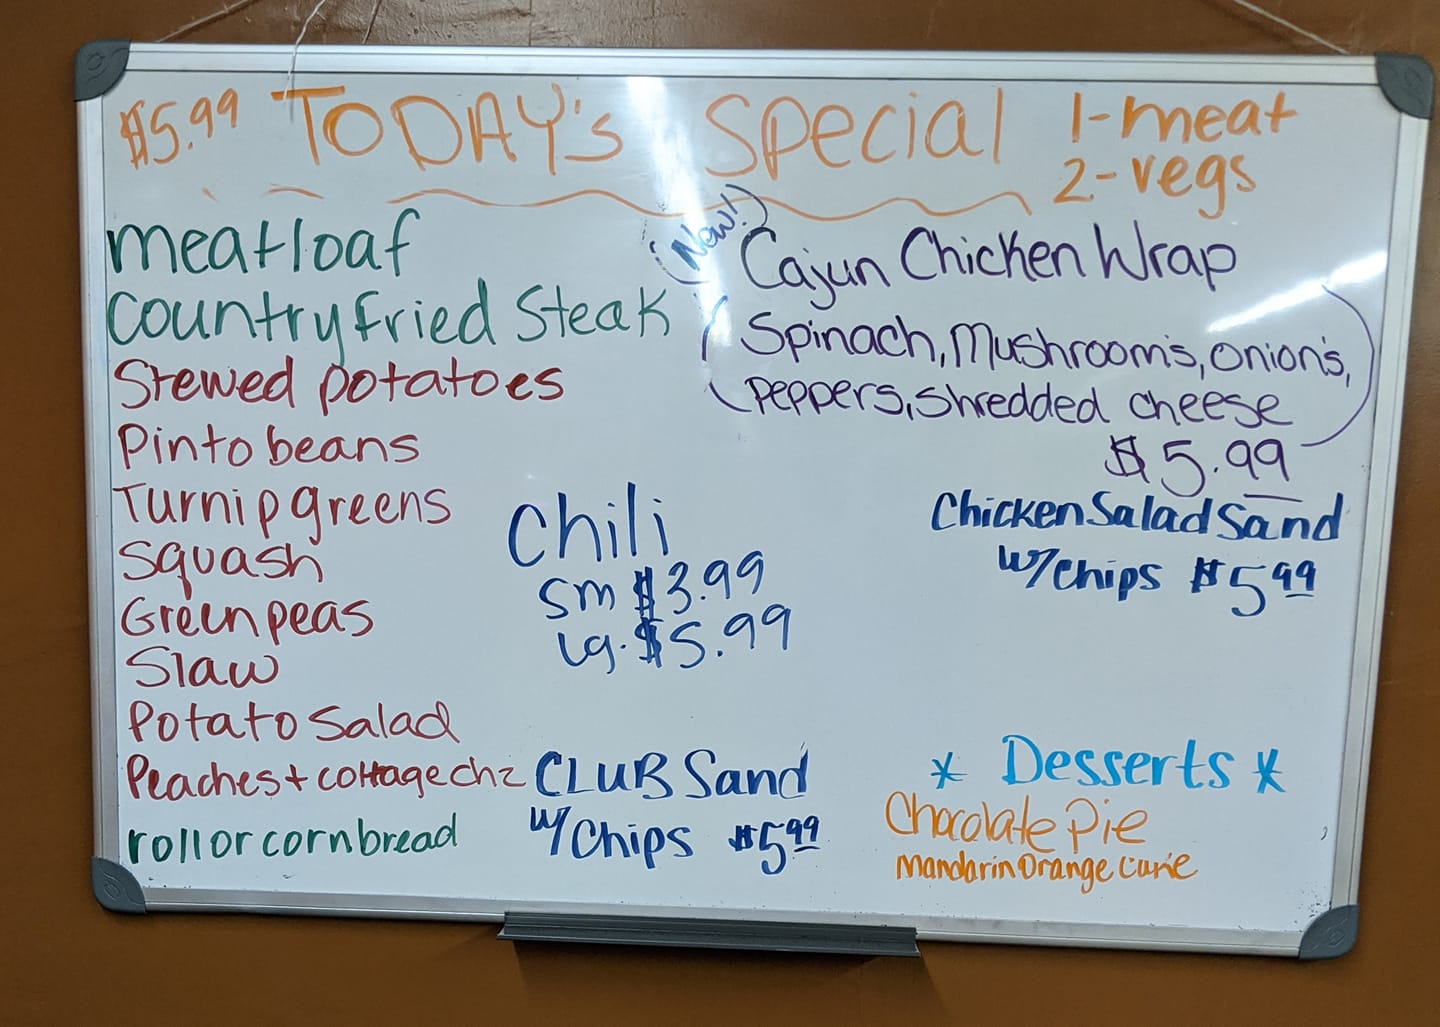 $5.99 TODAY's Special 1-meat
2-vegs
meatloaf
Country Fried Steak
Stewed potatoes
Pinto beans
Turnip greens
Squash
Green peas
Slaw
Potato Salad
Peaches + cottage chz
roll or cornbread
(New!)
Cajun Chicken Wrap
(Spinach, Mushroom's, onion's,
peppers, shredded cheese)
$5.99
Chicken Salad Sand
w/chips $5.99
Chili
sm $3.99
lg. $5.99
CLUB Sand
w/Chips $5.99
* Desserts *
Chocolate Pie
Mandarin Orange